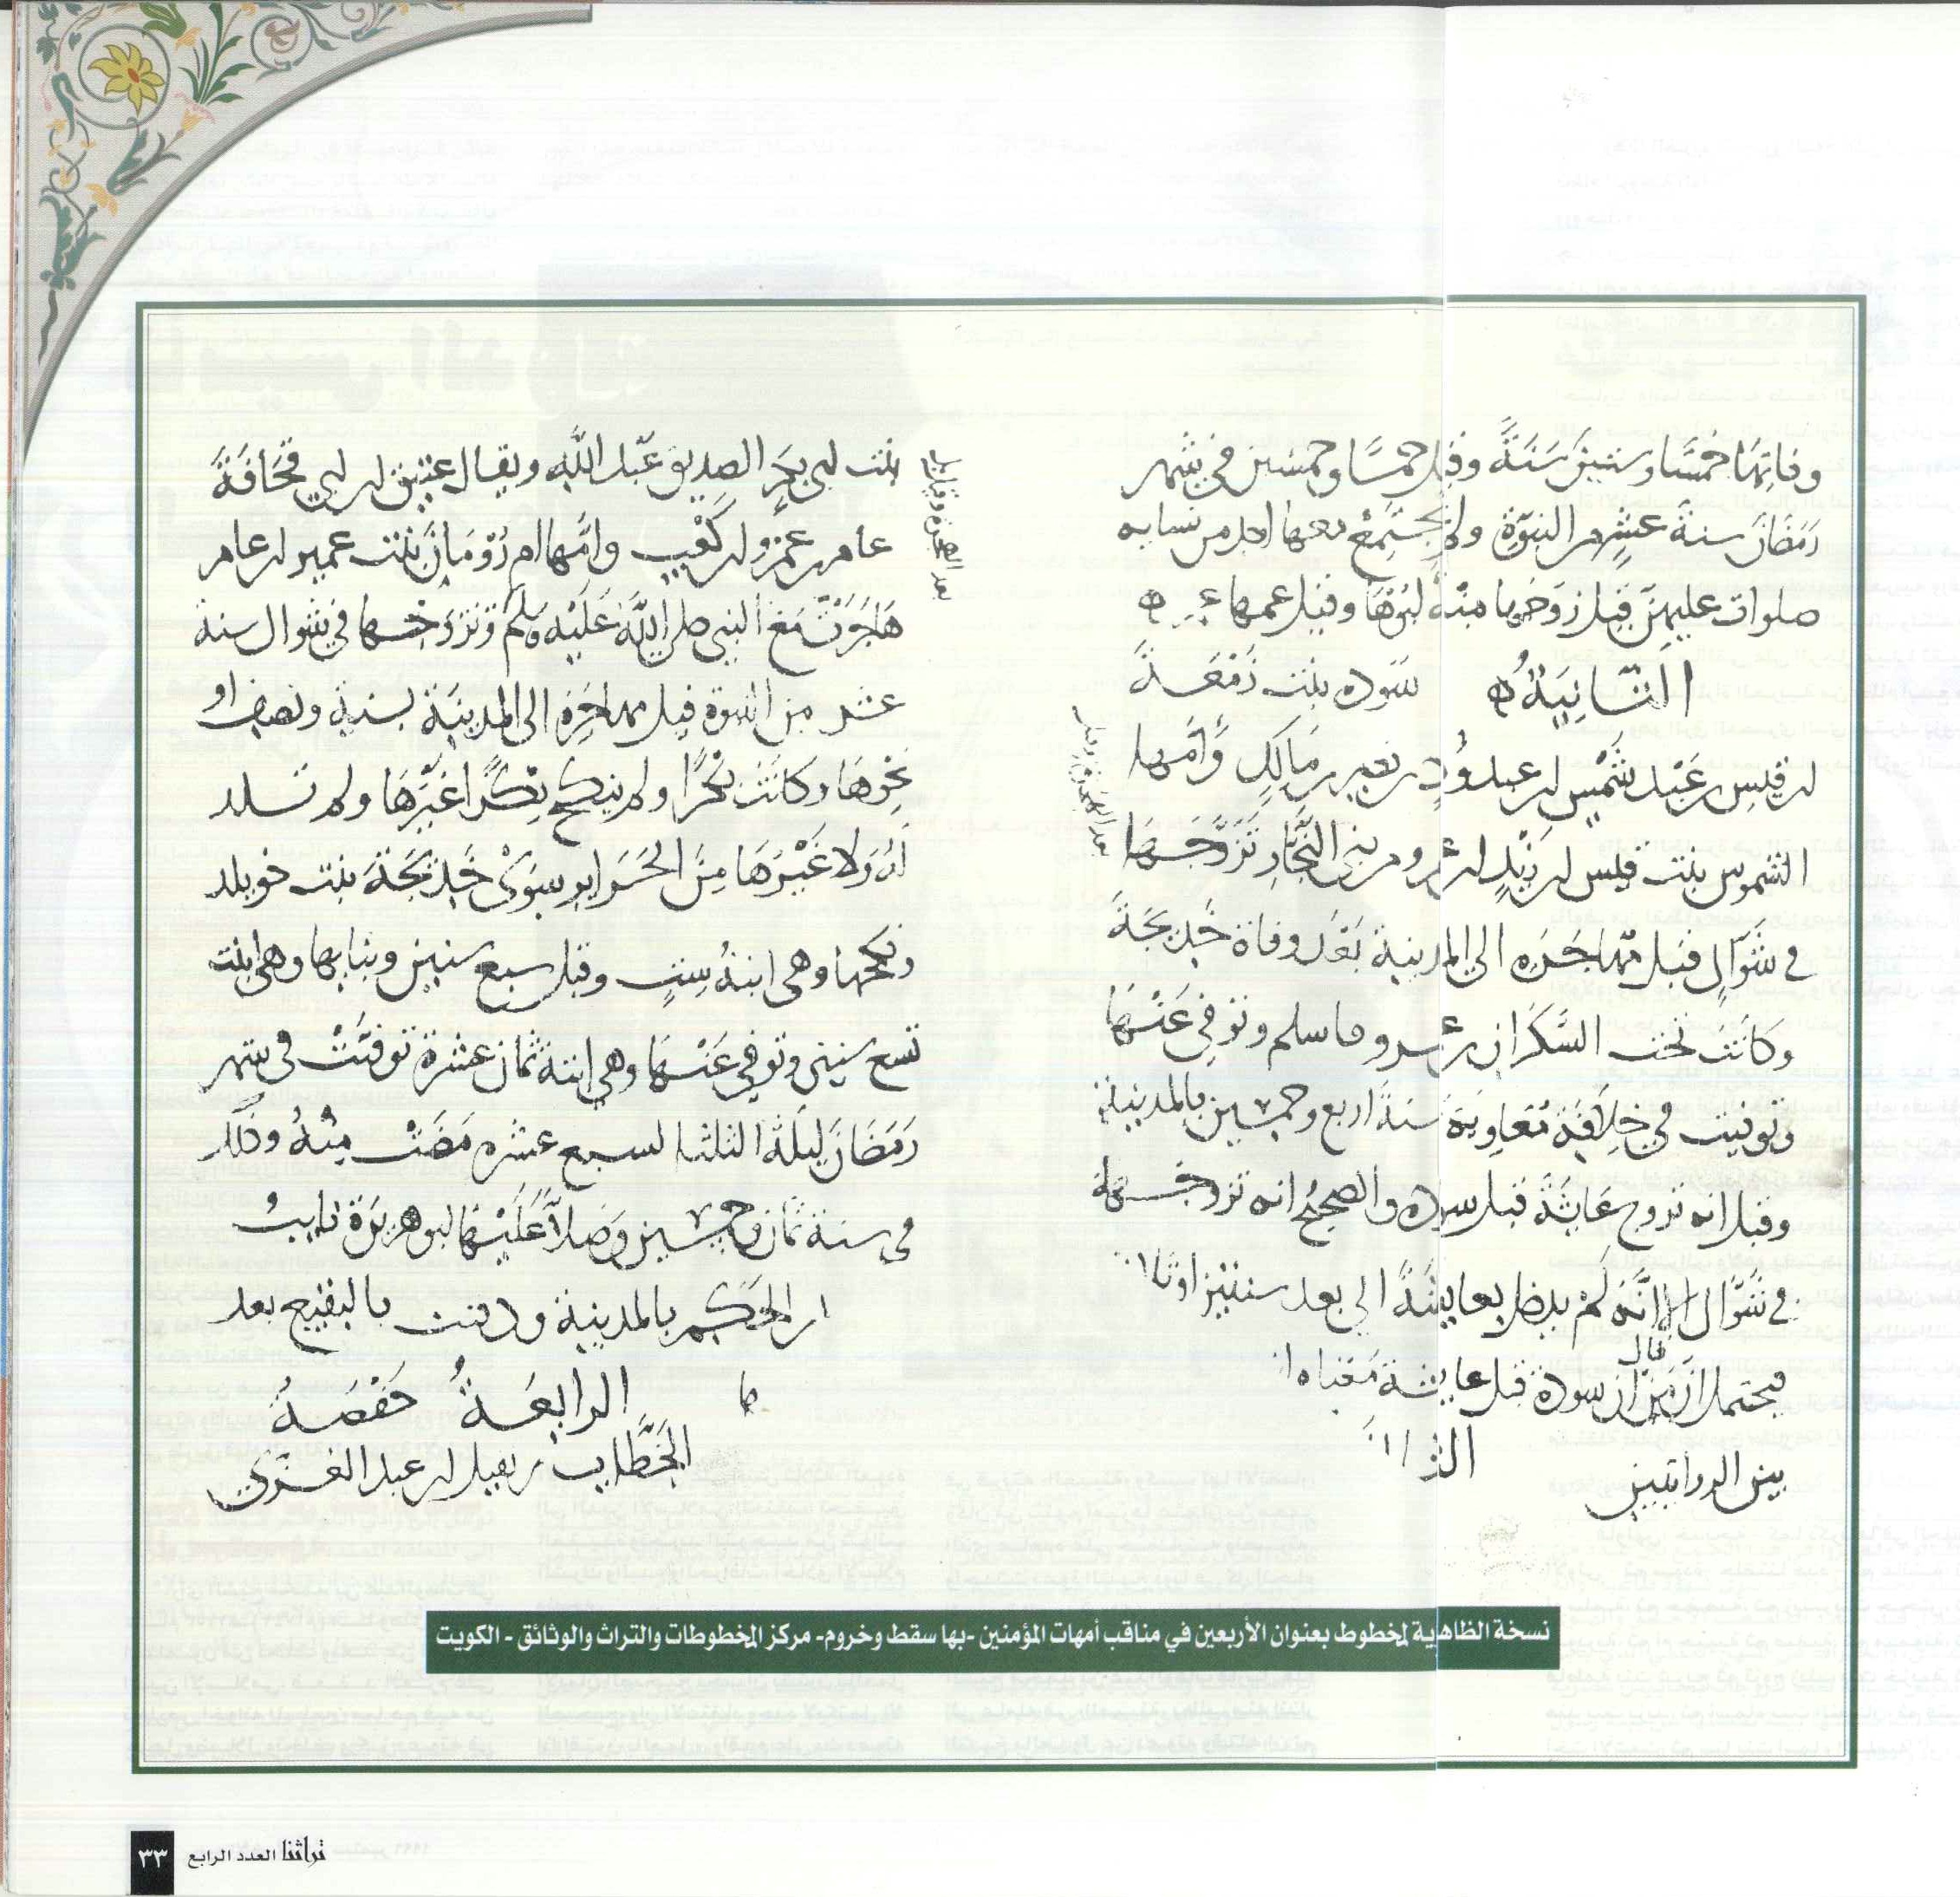 وفاتها خمسا وستين سنة وقيل خمسا وخمسين في شهر
رمضان سنة عشر من النبوة ولم يجتمع معها احد من نسايه
صلوات عليهن قيل زوجها منه ابوها وقيل عمها
الثانية سوده بنت زمعة
ابن قيس بن عبد شمس ابن عبد ود بن نصر بن مالك وأمها
الشموس بنت قيس ابن زيد ابن عمرو من بني النجار تزوجها
في شوال قبل مهاجره الى المدينة بعد وفاة خديجة
وكانت تحت السكران بن عمرو فاسلم وتوفي عنها
وتوفيت في خلافة معاوية سنة اربع وخمسين بالمدينة
وقيل انه تزوج عايشة قبل سوده والصحيح انه تزوجها
في شوال الا انه لم يدخل بعايشة الى بعد سنتين او ثلاث
فيحتمل ان من قال ان سودة قبل عايشة معناه
بين الروايتين
بنت ابي بكر الصديق عبد الله ويقال عتيق ابن ابي قحافة
عامر بن عمرو ابن كعب وامها ام رومان بنت عمير ابن عامر
هاجرت مع النبي صلى الله عليه وسلم وتزوجها في شوال سنة
عشر من النبوة قبل مهاجره الى المدينة بسنة ونصف او
نحوها وكانت بكرا ولم ينكح بكرا غيرها ولم تلد
له ولا غيرها من الحراير سوى خديجة بنت خويلد
ونكحها وهي ابنة ست وقيل سبع سنين وبنا بها وهي ابنت
تسع سنين وتوفي عنها وهي ابنة ثمان عشرة توفيت في شهر
رمضان ليلة الثلثا لسبع عشره مضت منه وذلك
في سنة ثمان وخمسين وصلا عليها ابو هريرة نايب
ابن الحكم بالمدينة ودفنت بالبقيع بعد
الرابعة حفصة
الخطاب بن نفيل ابن عبد العزى
نسخة الظاهرية لمخطوط بعنوان الأربعين في مناقب أمهات المؤمنين -بها سقط وخروم- مركز المخطوطات والتراث والوثائق - الكويت
تراثنا العدد الرابع ٣٣